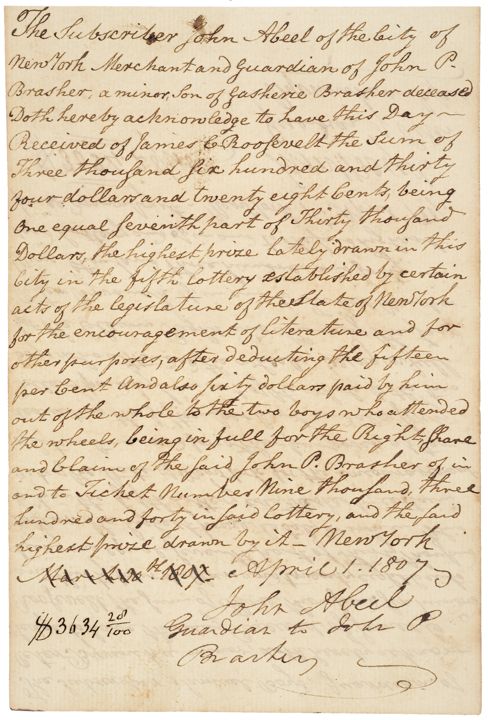 The Subscriber John Abeel of the City of
New York Merchant and Guardian of John P.
Brasher, a minor Son of Gasherie Brasher deceased
Doth hereby acknowledge to have this Day
Received of James C Roosevelt the Sum of
Three thousand Six hundred and thirty
four dollars and twenty eight Cents, being
One equal Seventh part of Thirty thousand
Dollars, the highest prize lately drawn in this
City in the fifth lottery established by certain
acts of the legislature of the State of New York
for the encouragement of literature and for
other purposes, after deducting the fifteen
per Cent And also sixty dollars paid by him
out of the whole to the two boys who attended
the wheels, being in full for the Right, Share
and Claim of the said John P. Brasher of in
and to Ticket Number Nine thousand, three
hundred and forty in said lottery, and the said
highest prize drawn by it – New York
April 1. 1807
John Abeel
$3634 28/100 Guardian to John P
Brasher